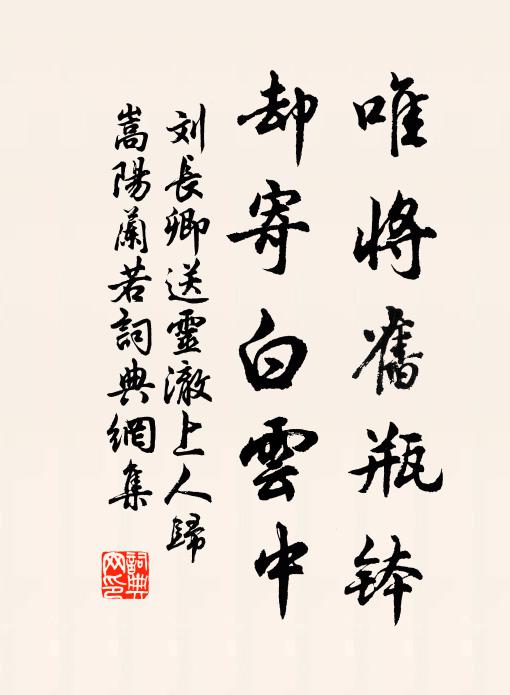 唯将舊瓶鉢
却寄白雲中
刘長卿送靈澈上人歸
嵩陽蘭若詞典網集
詞典
网印